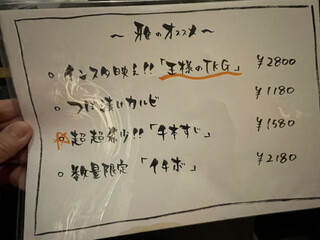 ~ 雅のオススメ ~
○ インスタ映え!! 「王様のTKG」 ¥2800
○ つけ凄いカルビ ¥1180
○ 超超希少!! 「千本すじ」 ¥1580
○ 数量限定 「イチボ」 ¥2180